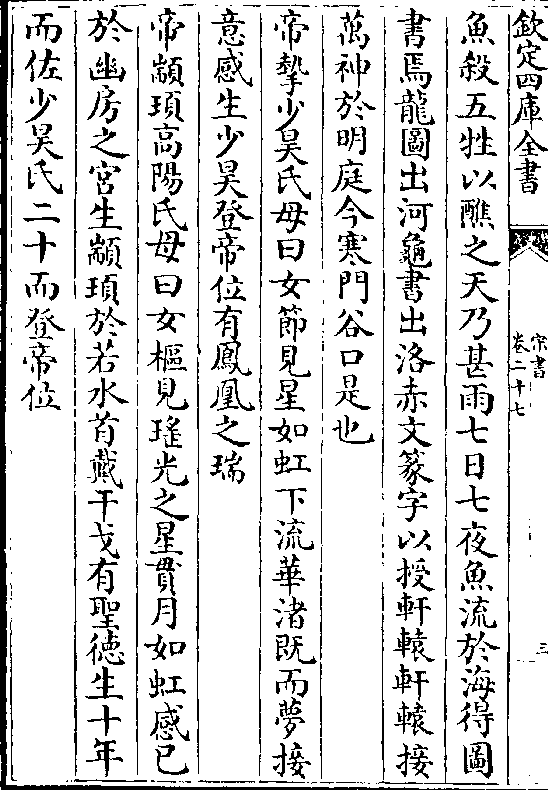 欽定四庫全書
宋書
卷二十七
三
魚殺五牲以醮之天乃甚雨七日七夜魚流於海得圖
書焉龍圖出河龜書出洛赤文篆字以授軒轅軒轅接
萬神於明庭今寒門谷口是也
帝摯少昊氏母曰女節見星如虹下流華渚既而夢接
意感生少昊登帝位有鳳凰之瑞
帝顓頊高陽氏母曰女樞見瑤光之星貫月如虹感已
於幽房之宮生顓頊於若水首戴干戈有聖德生十年
而佐少昊氏二十而登帝位